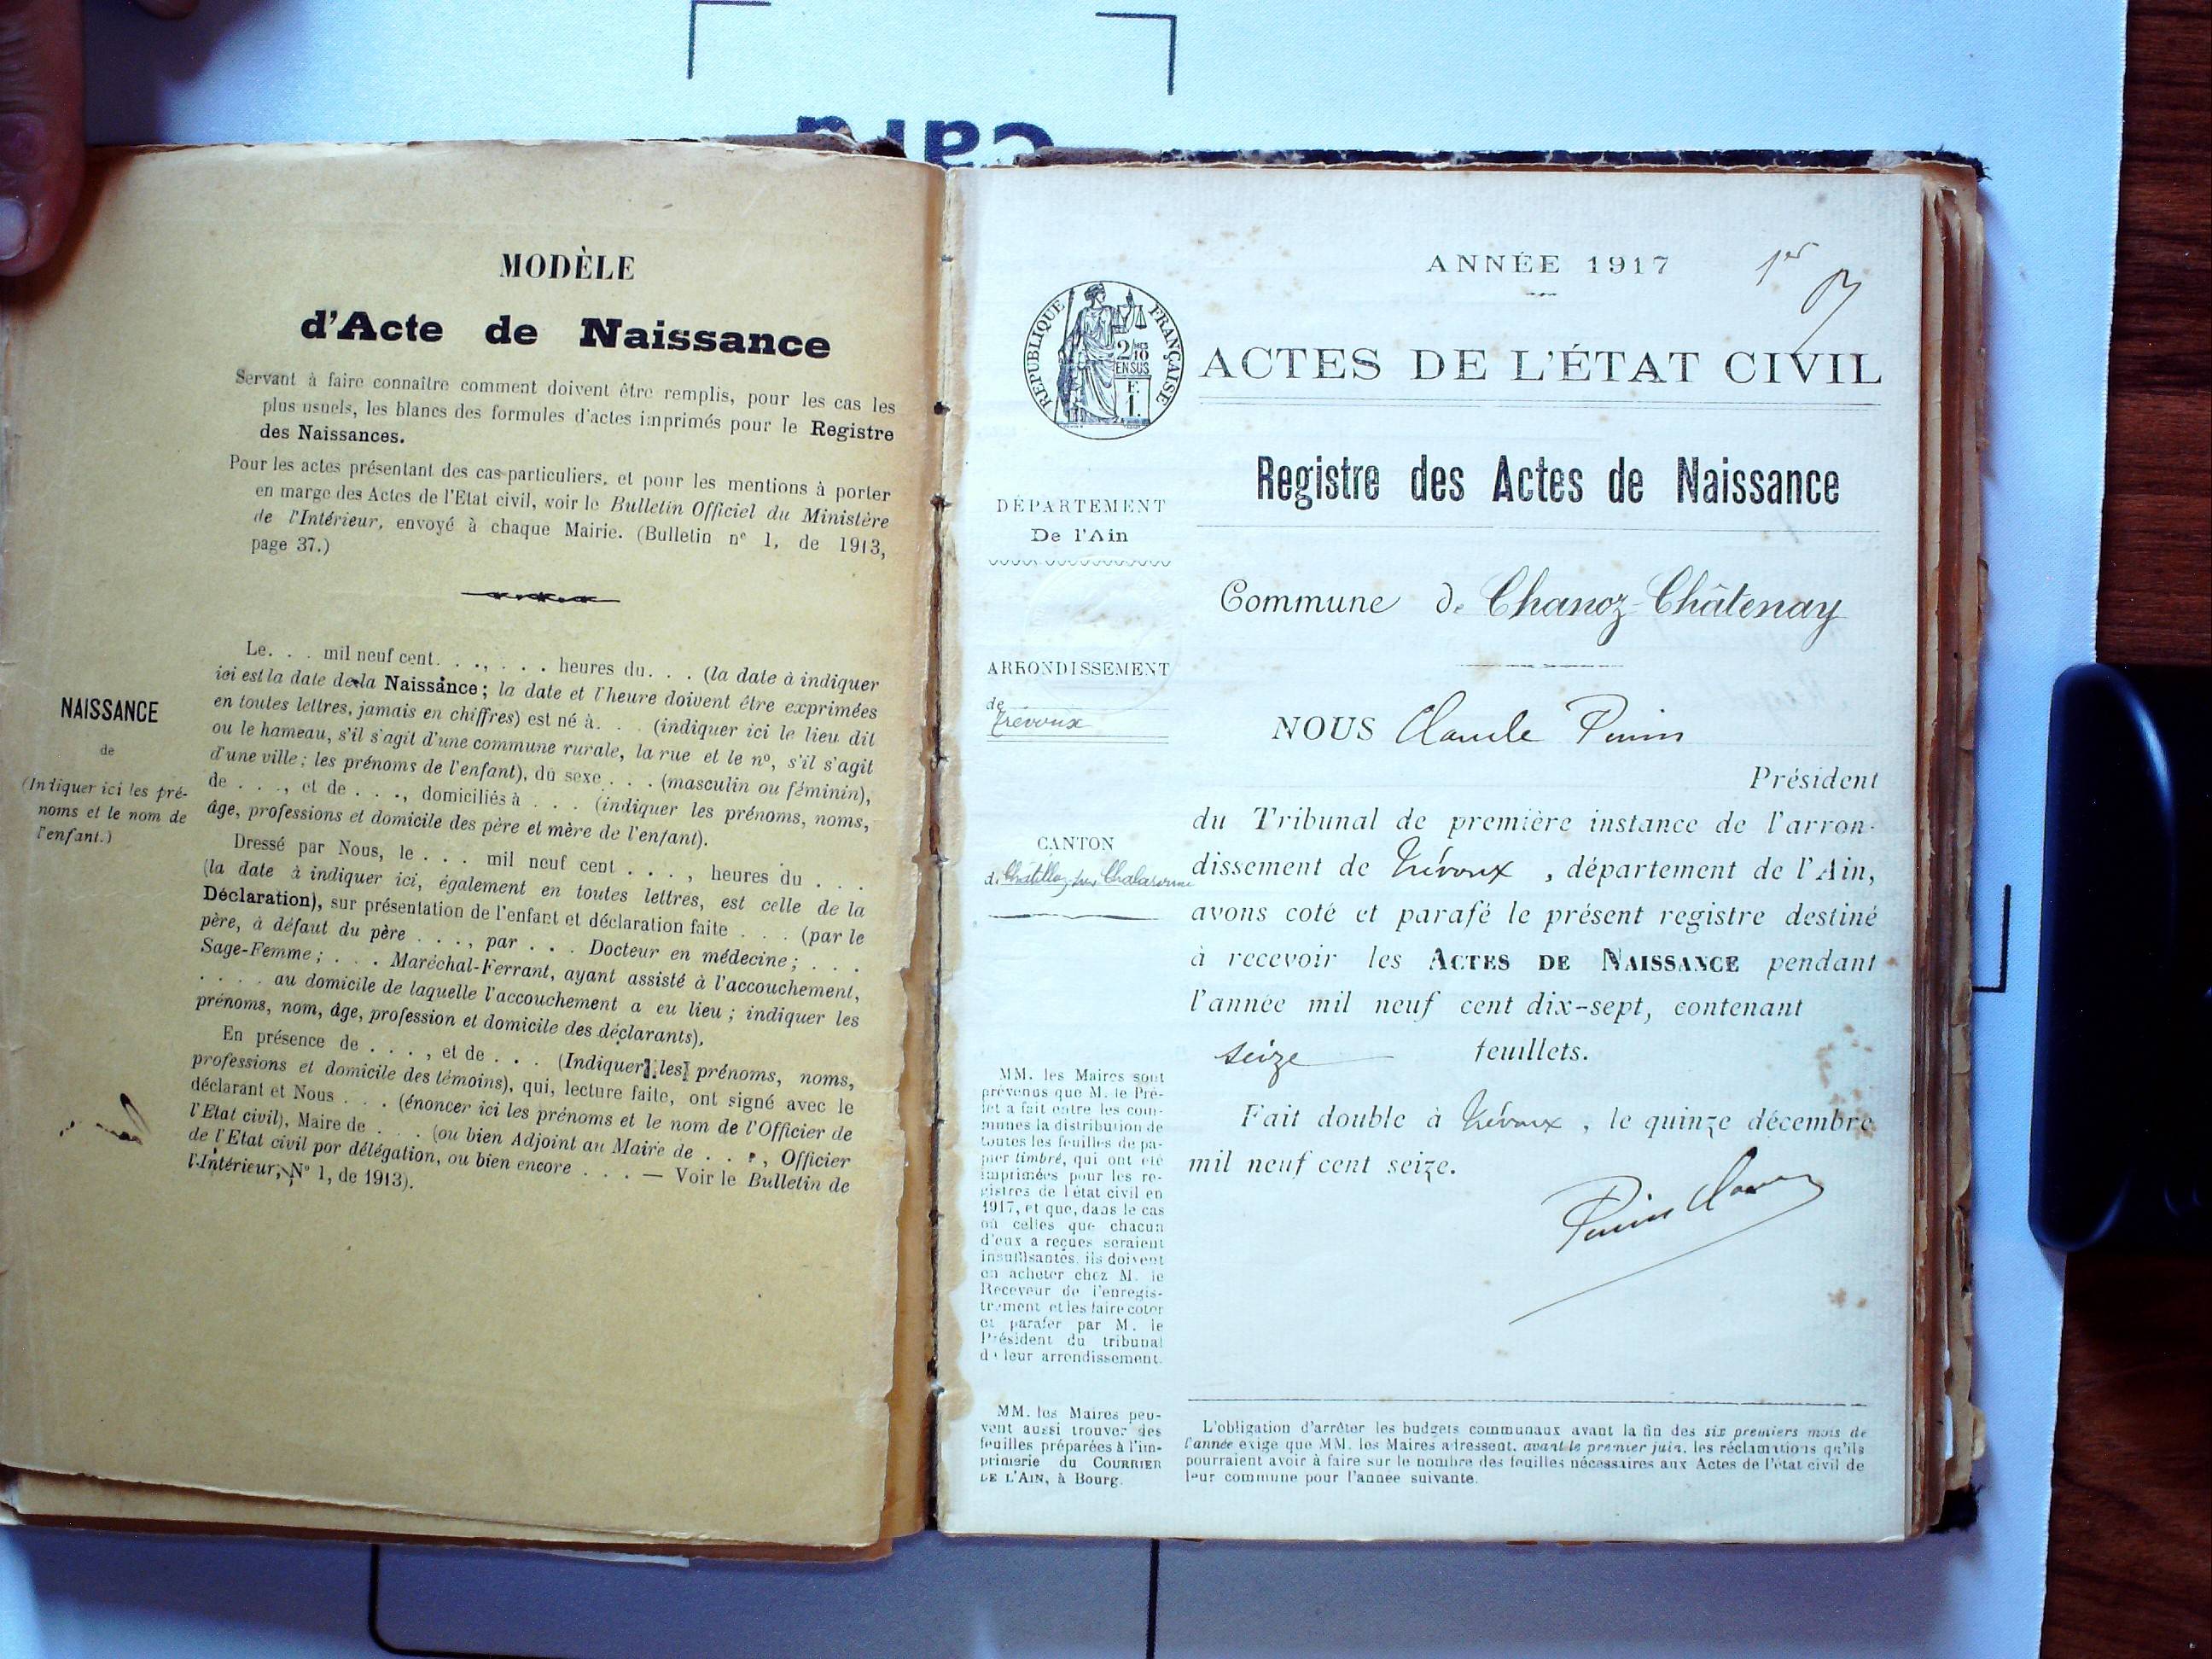 MODÈLE
d'Acte de Naissance
Servant à faire connaître comment doivent être remplis, pour les cas les
plus usuels, les blancs des formules d'actes imprimés pour le Registre
des Naissances.
Pour les actes présentant des cas particuliers, et pour les mentions à porter
en marge des Actes de l'Etat civil, voir le Bulletin Officiel du Ministère
de l'Intérieur, envoyé à chaque Mairie. (Bulletin n° 1, de 1913,
page 37.)
NAISSANCE
de
(Indiquer ici les pré-
noms et le nom de
l'enfant.)
Le. . . mil neuf cent. . ., . . . heures du. . . (la date à indiquer
ici est la date de la Naissance; la date et l'heure doivent être exprimées
en toutes lettres, jamais en chiffres) est né à. . . (indiquer ici le lieu dit
ou le hameau, s'il s'agit d'une commune rurale, la rue et le n°, s'il s'agit
d'une ville; les prénoms de l'enfant), du sexe . . . (masculin ou féminin),
de . . ., et de . . ., domiciliés à . . . (indiquer les prénoms, noms,
âge, professions et domicile des père et mère de l'enfant).
Dressé par Nous, le . . . mil neuf cent . . . , heures du . . .
(la date à indiquer ici, également en toutes lettres, est celle de la
Déclaration), sur présentation de l'enfant et déclaration faite . . . (par le
père, à défaut du père . . ., par . . . Docteur en médecine; . . .
Sage-Femme; . . . Maréchal-Ferrant, ayant assisté à l'accouchement,
. . . . au domicile de laquelle l'accouchement a eu lieu; indiquer les
prénoms, nom, âge, profession et domicile des déclarants),
En présence de . . . , et de . . . (Indiquer les prénoms, noms,
professions et domicile des témoins), qui, lecture faite, ont signé avec le
déclarant et Nous . . . (énoncer ici les prénoms et le nom de l'Officier de
l'Etat civil), Maire de . . . (ou bien Adjoint au Maire de . . . , Officier
de l'Etat civil por délégation, ou bien encore . . . — Voir le Bulletin de
l'Intérieur, N° 1, de 1913).
ANNÉE 1917
1er
RÉPUBLIQUE FRANÇAISE
2/10
EN SUS
F.
1.
ACTES DE L'ÉTAT CIVIL
Registre des Actes de Naissance
DÉPARTEMENT
De l'Ain
Commune de Chanoz-Châtenay
ARRONDISSEMENT
de
Trévoux
NOUS Claude
Président
du Tribunal de première instance de l'arron-
dissement de Trévoux , département de l'Ain,
avons coté et parafé le présent registre destiné
à recevoir les ACTES DE NAISSANCE pendant
l'année mil neuf cent dix-sept, contenant
seize feuillets.
Fait double à Trévoux , le quinze décembre
mil neuf cent seize.
CANTON
de Châtillon sur Chalaronne
MM. les Maires sont
prévenus que M. le Pré-
fet a fait entre les com-
munes la distribution de
toutes les feuilles de pa-
pier timbré, qui ont été
imprimées pour les re-
gistres de l'état civil en
1917, et que, dans le cas
où celles que chacun
d'eux a reçues seraient
insuffisantes, ils doivent
en acheter chez M. le
Receveur de l'enregis-
trement et les faire coter
et parafer par M. le
Président du tribunal
de leur arrondissement.
MM. les Maires peu-
vent aussi trouver des
feuilles préparées à l'im-
primerie du COURRIER
DE L'AIN, à Bourg.
L'obligation d'arrêter les budgets communaux avant la fin des six premiers mois de
l'année exige que MM. les Maires adressent, avant le premier juin, les réclamations qu'ils
pourraient avoir à faire sur le nombre des feuilles nécessaires aux Actes de l'état civil de
leur commune pour l'année suivante.